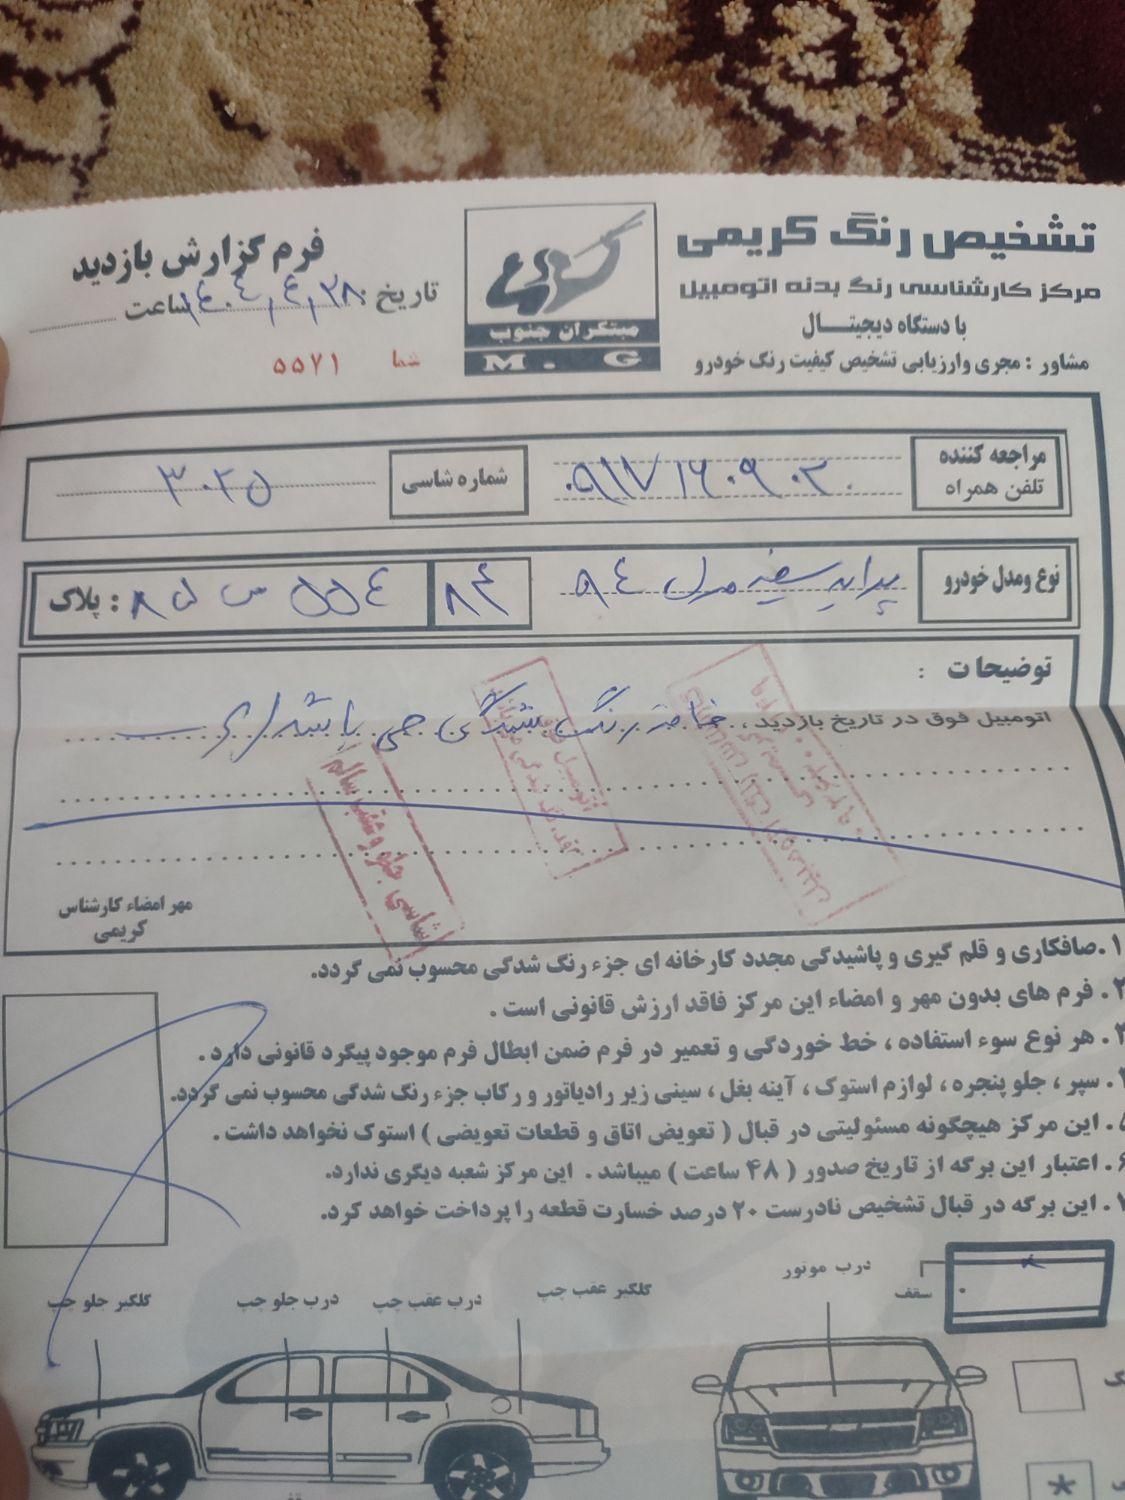 تشخیص رنگ کریمی
مرکز کارشناسی رنگ بدنه اتومبیل
با دستگاه دیجیتال
مشاور : مجری وارزیابی تشخیص کیفیت رنگ خودرو
مبتکران جنوب
M. G
فرم گزارش بازدید
تاریخ : ۱۴۰۴,۴,۲۸ ساعت
شما ۵۵۷۱
مراجعه کننده
تلفن همراه
۰۹۱۷۱۶۰۹۰۲۰
شماره شاسی ۳۰۲۵
نوع ومدل خودرو پراید سفید مدل ۹۴
پلاک :
۸۴
توضیحات :
اتومبیل فوق در تاریخ بازدید، فاقد رنگ شدگی می باشد
شاسی جلو و عقب سالم
مهر امضاء کارشناس
کریمی
۱. صافکاری و قلم گیری و پاشیدگی مجدد کارخانه ای جزء رنگ شدگی محسوب نمی گردد.
۲. فرم های بدون مهر و امضاء این مرکز فاقد ارزش قانونی است .
۳. هر نوع سوء استفاده ، خط خوردگی و تعمیر در فرم ضمن ابطال فرم موجود پیگرد قانونی دارد .
. سپر ، جلو پنجره ، لوازم استوک ، آینه بغل ، سینی زیر رادیاتور و رکاب جزء رنگ شدگی محسوب نمی گردد.
۵. این مرکز هیچگونه مسئولیتی در قبال ( تعویض اتاق و قطعات تعویضی ) استوک نخواهد داشت .
۶. اعتبار این برگه از تاریخ صدور ( ۴۸ ساعت ) میباشد . این مرکز شعبه دیگری ندارد.
. این برگه در قبال تشخیص نادرست ۲۰ درصد خسارت قطعه را پرداخت خواهد کرد.
سقف
درب موتور
گلگیر عقب چپ
درب عقب چپ
درب جلو چپ
گلگیر جلو چپ